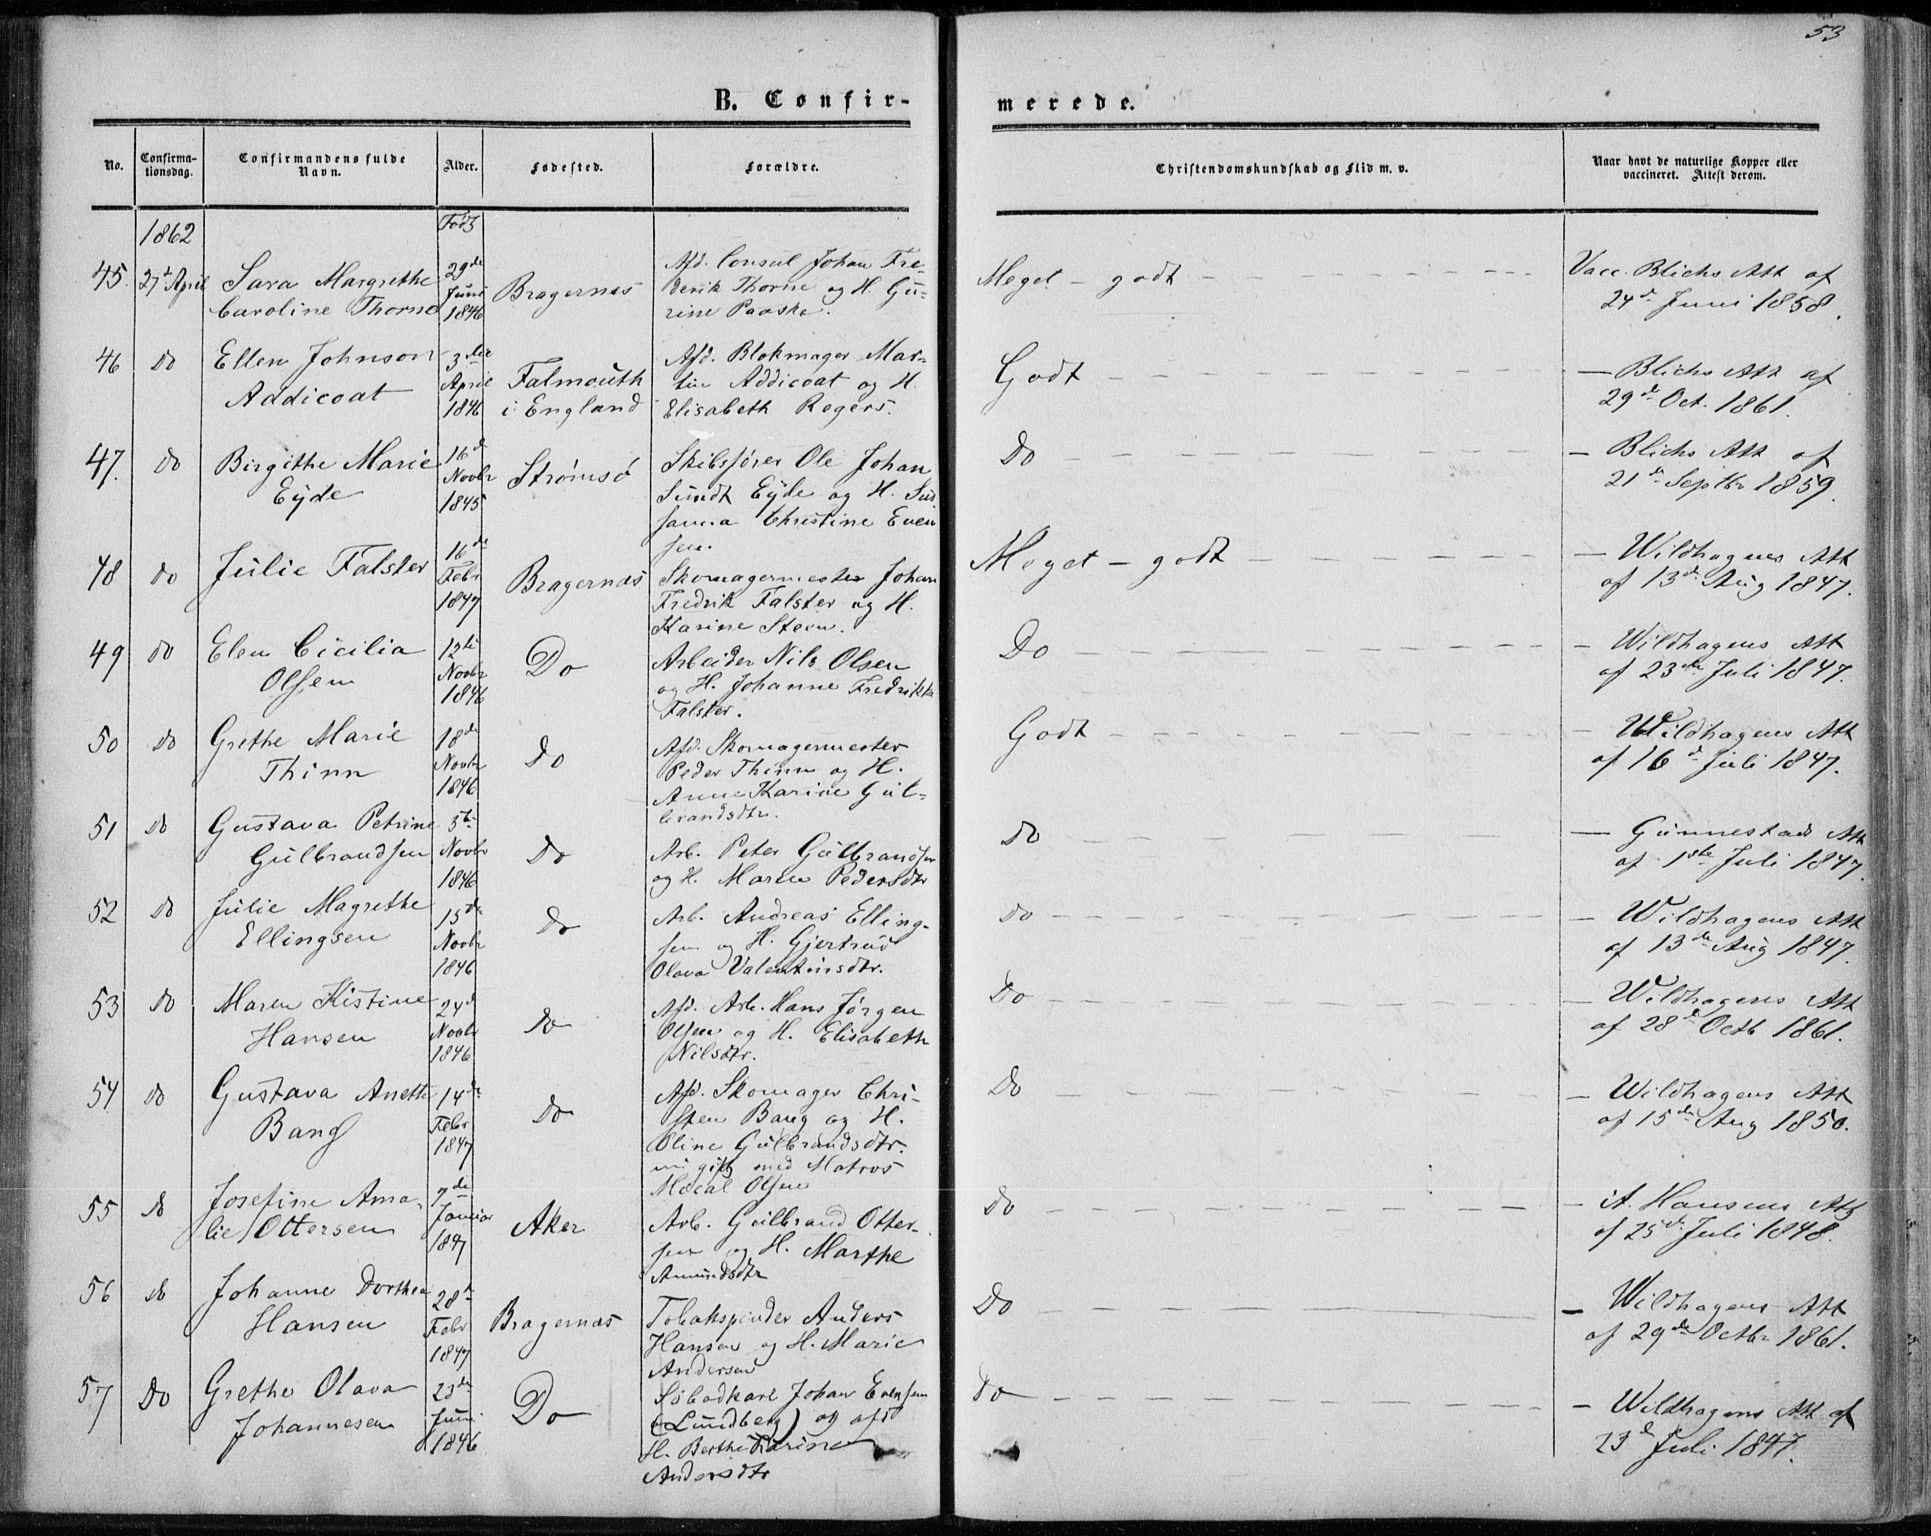 53
B. Confir-
merede.
No.
Confirma-
tionsdag.
Confirmandens fulde
Navn.
Alder.
Fødested.
Forældre.
Christendomskundskab og Flid m. v.
Naar havt de naturlige Kopper eller
vaccineret. Attest derom.
1862
Født
45. 27d April Sara Margrethe Caroline Thorne 29de Juni 1846 Bragernæs
Afd. Consul Johan Fre-
derik Thorne og H. Gu-
rine Paaske.
Meget - godt
Vacc. Blichs Att af
24d Juni 1858.
46 Do Ellen Johnson Addicoat 3die April 1846 Falmouth i England
Afd. Blokmager Mar-
tin Addicoat og H.
Elisabeth Rogers.
Godt
— Blichs Att af
29d Oct. 1861.
47. Do Birgithe Marie Eyde 16d Novbr 1845 Strømsø
Skibsfører Ole Johan
Sundt Eyde og H. Su-
sanna Christine Even
sen.
Do
— Blichs Att af
21d Septbr 1859.
48 Do Julie Falster 16de Febr 1847 Bragernæs
Skomagermester Johan
Fredrik Falster og H.
Karine Steen.
Meget - godt
— Wildhagens Att
af 13de Aug 1847.
49 Do Elen Cicilia Olsen 12te Novbr 1846 Do
Arbeider Nils Olsen
og H. Johanne Fredrikke
Falster.
Do
— Wildhagens Att
af 23de Juli 1847.
50 Do Grethe Marie Thinn 18de Novbr 1846 Do
Afd. Skomagermester
Peder Thinn og H.
Anne Karine Gul-
brandsdtr.
Godt
— Wildhagens Att
af 16d Juli 1847.
51 Do Gustava Petrine Gulbrandsen 5te Novbr 1846 Do
Arb. Peter Gulbrandsen
og H. Maren Pedersdtr
Do
— Gunnestads Att
af 1ste Juli 1847.
52 Do Julie Magrethe Ellingsen 15de Novbr 1846 Do
Arb. Andreas Elling-
sen og H. Gjertrud
Olava Valentinsdtr.
Do
— Wildhagens Att
af 13de Aug 1847.
53 Do Maren Kistine Hansen 24d Novbr 1846 Do
Afd. Arb. Hans Jørgen
Olsen og H. Elisabeth
Nilsdtr.
Do
— Wildhagens Att
af 28d Octb 1861.
54 Do Gustava Anette Bang 14de Febr 1847 Do
Afd. Skomager Chri-
sten Bang og H.
Oline Gulbrandsdtr.
nu gift med Matros
Olsen
Do
— Wildhagens Att
af 15de Aug 1850.
55 Do Josefine Ama- lie Ottersen 7de Januar 1847 Aker
Arb. Gulbrand Otter-
sen og H. Marthe
Amundsdtr
Do
— A. Hansens Att
af 25de Juli 1848.
56 Do Johanne Dorthea Hansen 28d Febr 1847 Bragernæs
Tobakspinder Anders
Hansen og H. Marie
Andersen
Do
— Wildhagens Att
af 29de Octbr 1861.
57 Do Grethe Olava Johannesen 23de Juni 1846 Do
Johan Evensen
(Lundberg) og afd
H. Berthe Karine
Andersdtr
Do
— Wildhagens Att af
23d Juli 1847.